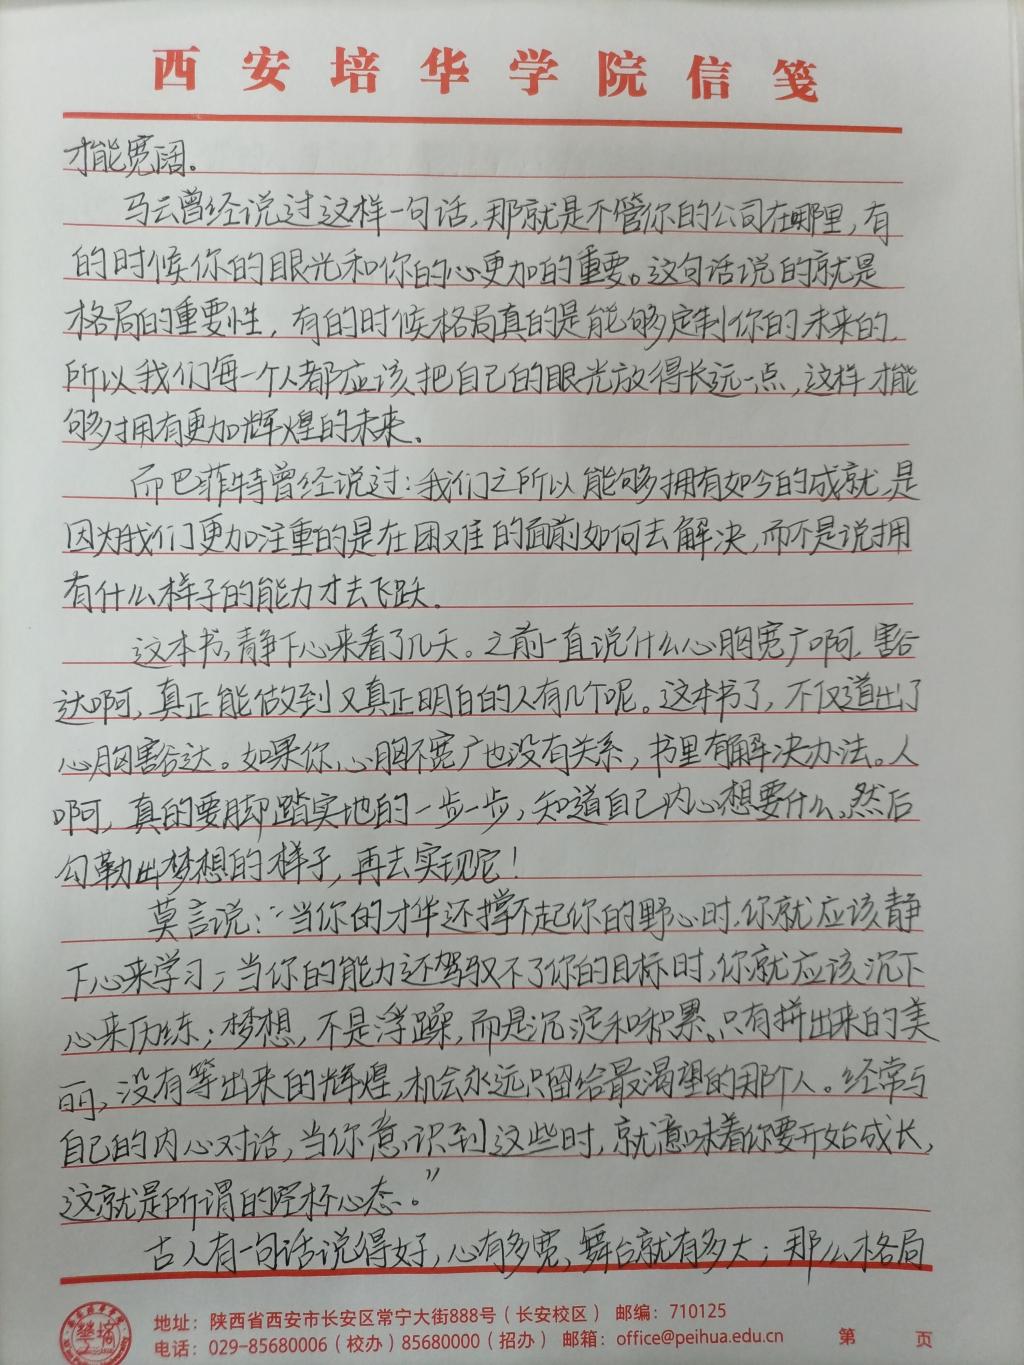 西安培华学院信笺
才能宽阔。
马云曾经说过这样一句话，那就是不管你的公司在哪里，有
的时候你的眼光和你的心更加的重要。这句话说的就是
格局的重要性，有的时候格局真的是能够定制你的未来的，
所以我们每一个人都应该把自己的眼光放得长远一点，这样才能
够拥有更加辉煌的未来。
而巴菲特曾经说过：我们之所以能够拥有如今的成就，是
因为我们更加注重的是在困难的面前如何去解决，而不是说拥
有什么样子的能力才去飞跃。
这本书，静下心来看了几天。之前一直说什么心胸宽广啊，豁
达啊，真正能做到又真正明白的人有几个呢。这本书了，不仅道出了
心胸豁达。如果你，心胸不宽广也没有关系，书里有解决办法。人
啊，真的要脚踏实地的一步一步，知道自己内心想要什么，然后
勾勒出梦想的样子，再去实现它！
莫言说：“当你的才华还撑不起你的野心时，你就应该静
下心来学习；当你的能力还驾驭不了你的目标时，你就应该沉下
心来历练；梦想，不是浮躁，而是沉淀和积累。只有拼出来的美
丽，没有等出来的辉煌，机会永远只留给最渴望的那个人。经常与
自己的内心对话，当你意识到这些时，就意味着你要开始成长，
这就是所谓的空杯心态。”
古人有一句话说得好，心有多宽，舞台就有多大；那么格局
地址：陕西省西安市长安区常宁大街888号（长安校区） 邮编：710125
电话：029-85680006（校办）85680000（招办） 邮箱：office@peihua.edu.cn 第 页